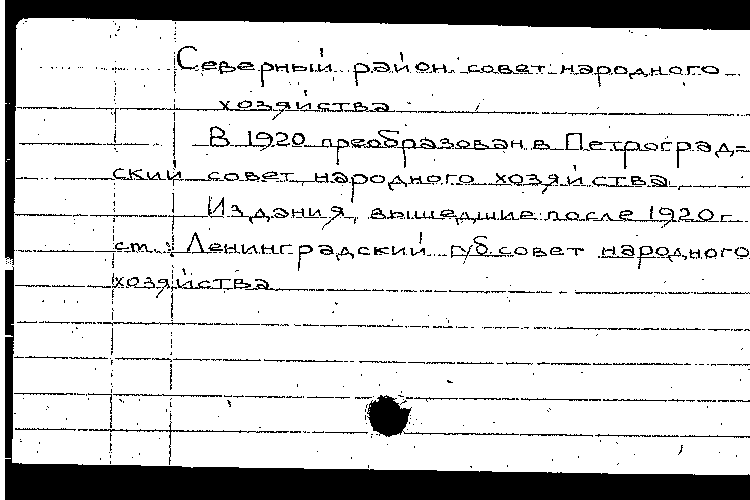 Северный район. совет народного
хозяйства
В 1920 преобразован в Петроград=
ский совет народного хозяйства.
Издания, вышедшие после 1920 г.
см.: Ленинградский губсовет народного
хозяйства